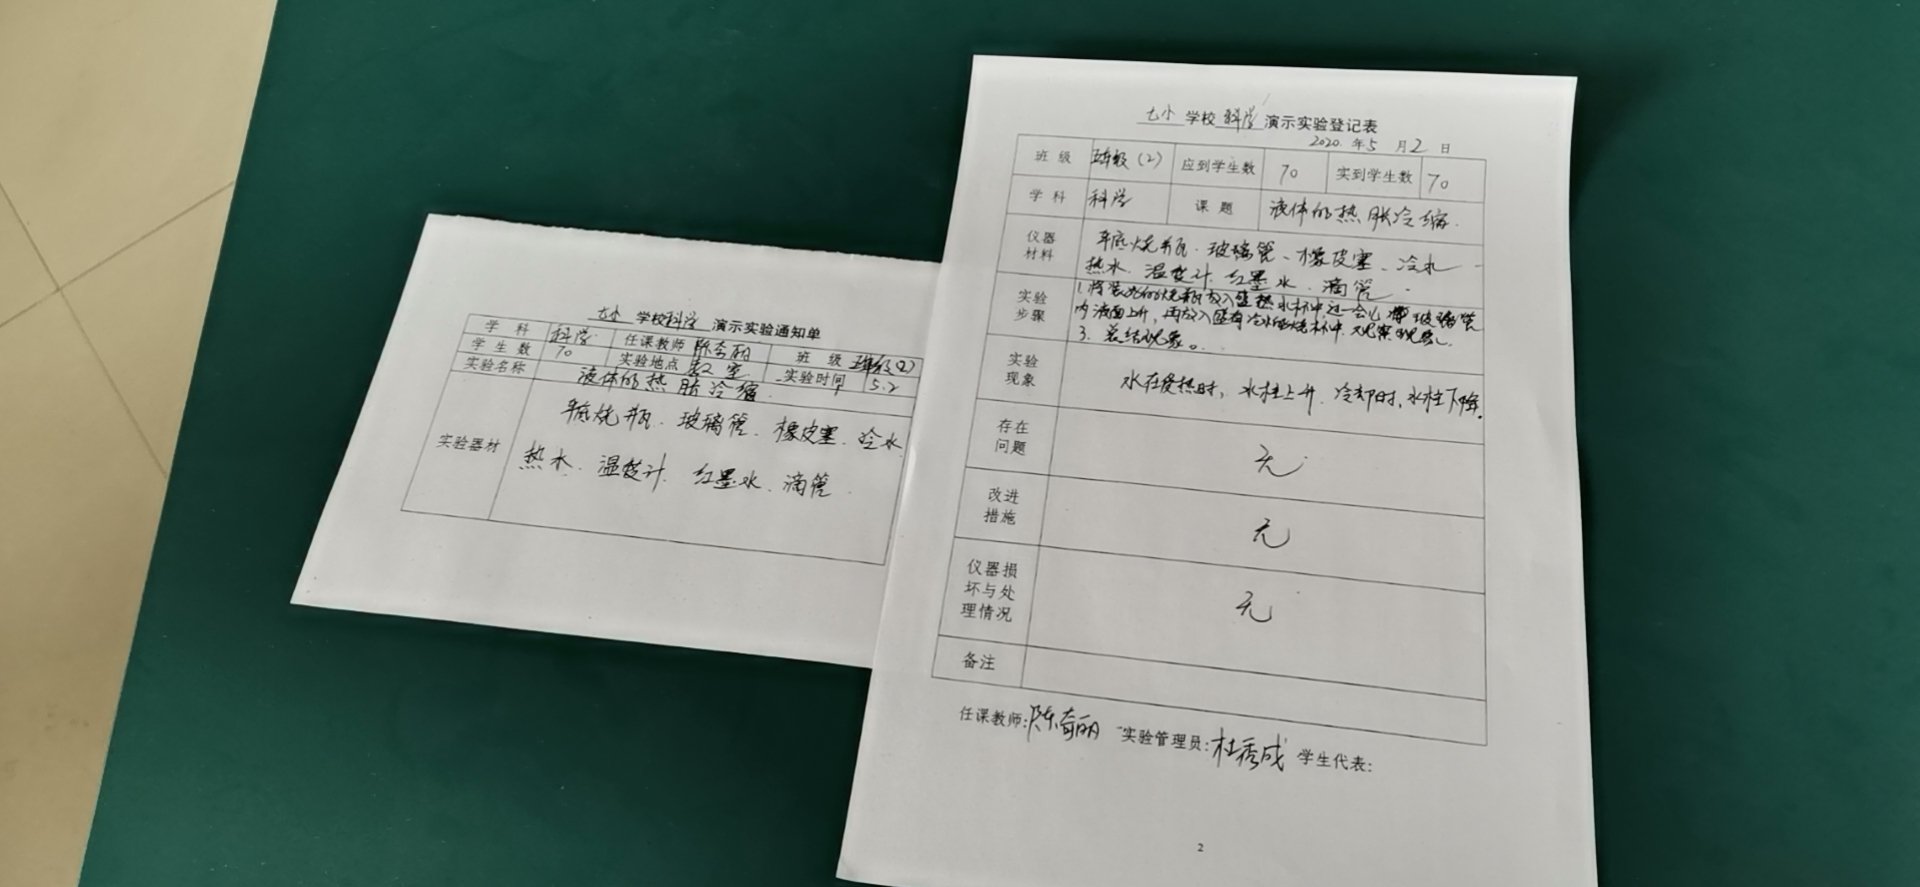 七小 学校 科学 演示实验通知单
学 科 科学 任课教师 陈奇丽
学 生 数 70 实验地点 教室 班 级 五年级(2)
实验名称 液体的热胀冷缩 实验时间 5.2
实验器材 平底烧瓶、玻璃管、橡皮塞、冷水
热水、温度计、红墨水、滴管
七小 学校 科学 演示实验登记表
2020 年 5 月 2 日
班 级 五年级(2) 应到学生数 70 实到学生数 70
学 科 科学 课 题 液体的热胀冷缩.
仪器材料 平底烧瓶、玻璃管、橡皮塞、冷水
热水、温度计、红墨水、滴管
实验步骤 1.将装好的烧瓶放入热水杯中,过一会儿玻璃管
内液面上升,再放入冷水的烧杯中,2.观察现象.
3、总结现象。
实验现象 水在受热时,水柱上升,冷却时,水柱下降。
存在问题 无
改进措施 无
仪器损坏与处理情况 无
备注
任课教师:陈奇丽 实验管理员:杜秀成 学生代表:
2